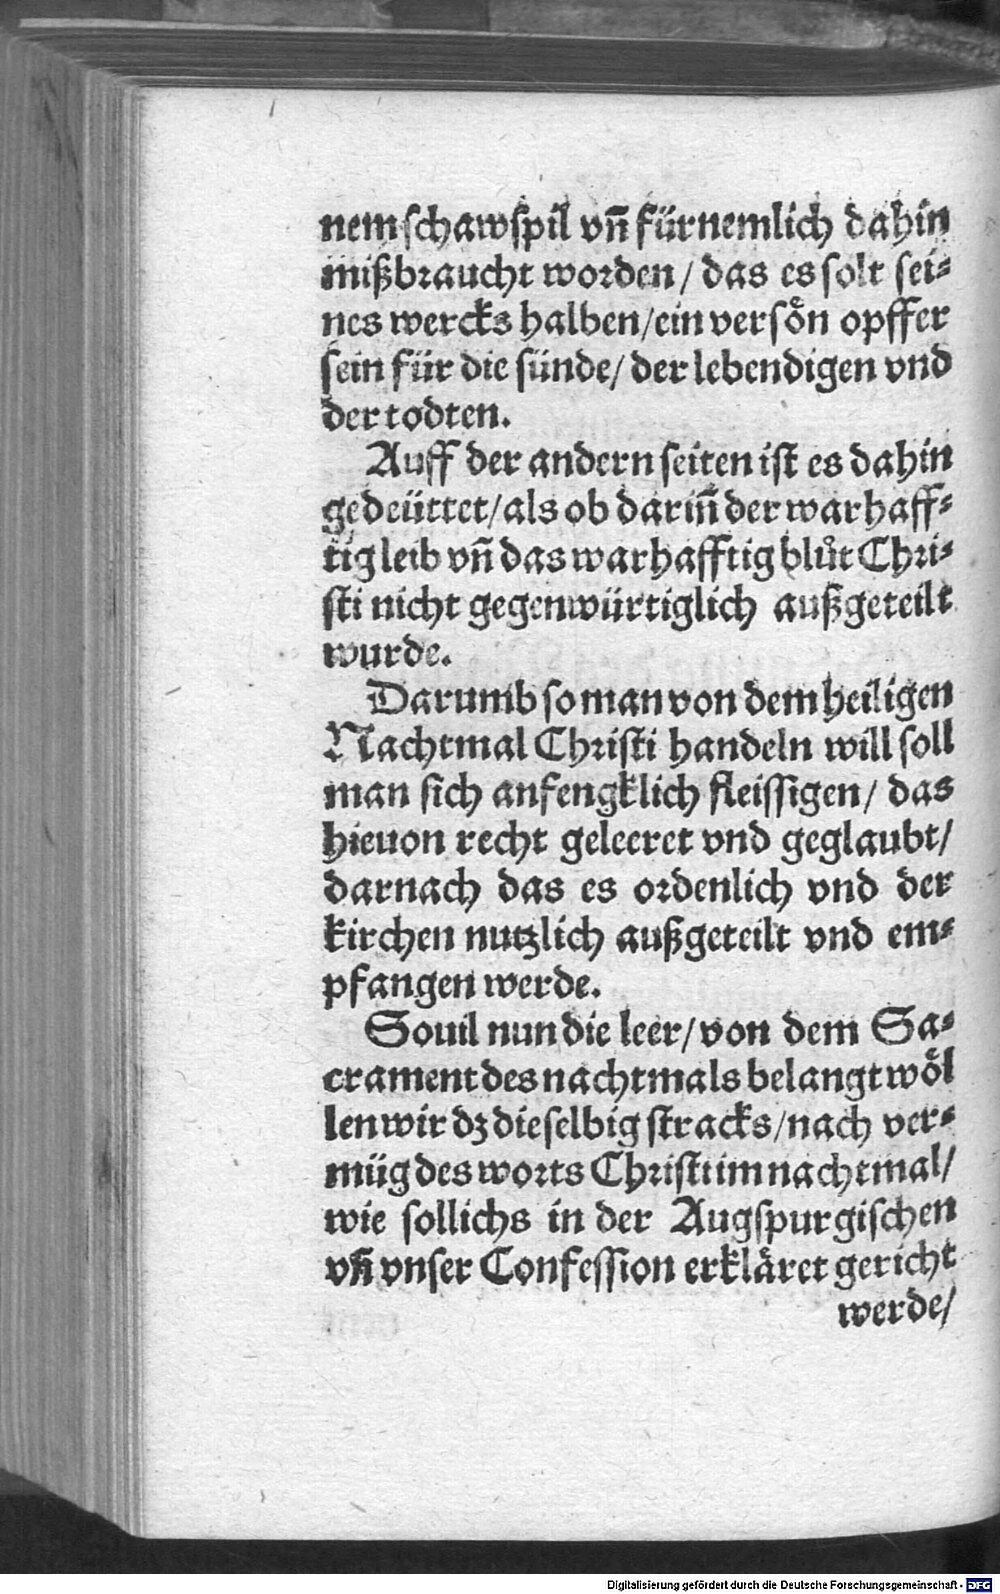 nem schawspil vñ fürnemlich dahin
mißbraucht worden / das es solt sei⸗
nes wercks halben / ein versoͤn opffer
sein für die sünde / der lebendigen vnd
der todten.
Auff der andern seiten ist es dahin
gedeüttet / als ob dariñ der warhaff⸗
tig leib vñ das warhafftig blůt Chri⸗
sti nicht gegenwürtiglich außgeteilt
wurde.
Darumb so man von dem heiligen
Nachtmal Christi handeln will soll
man sich anfengklich fleissigen / das
hieuon recht geleeret vnd geglaubt /
darnach das es ordenlich vnd der
kirchen nutzlich außgeteilt vnd em⸗
pfangen werde.
Souil nun die leer / von dem Sa⸗
crament des nachtmals belangt woͤl
len wir dz dieselbig stracks / nach ver⸗
müg des worts Christi im nachtmal /
wie sollichs in der Augspurgischen
vñ vnser Confession erklaͤret gericht
werde /
Digitalisierung gefördert durch die Deutsche Forschungsgemeinschaft - DFG